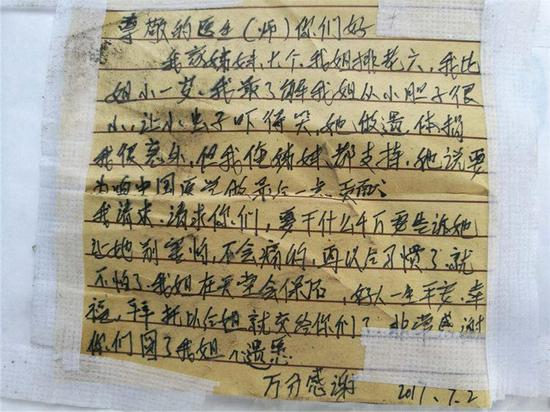 尊敬的医生(师)你们好
我姊妹七个.我姐排老六,我比
姐小一岁.我最了解我姐从小胆子很
小,让小虫子吓得哭,她做遗体捐
我很意外,但我姊妹都支持.她说要
为中国医学做最后一点贡献.
我请求.请求你们,要干什么千万要告诉她
让她别害怕.不会痛的,再以后习惯了就
不怕了.我姐在天堂会保佑,好人一生平安.幸
福,拜托以后姐就交给你们了.非常感谢
你们圆了我姐个遗愿
万分感谢 2017.7.2